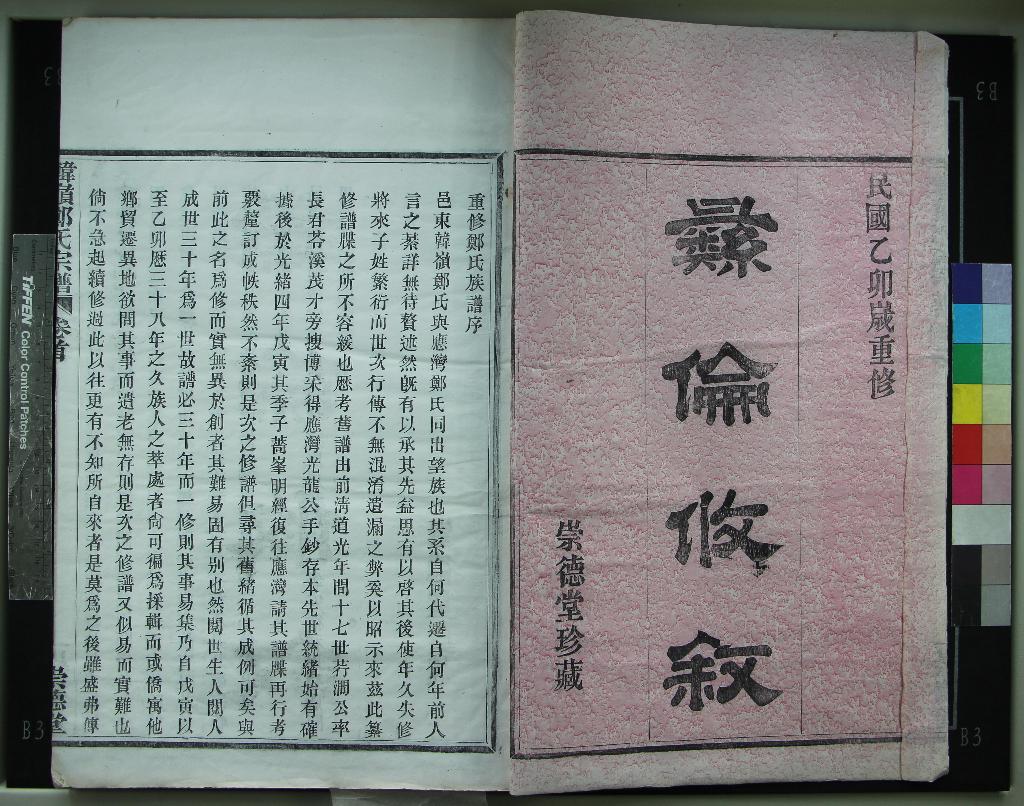 民國乙卯歲重修
彝倫攸敘
崇德堂珍藏
重修鄭氏族譜序
邑東韓嶺鄭氏與應灣鄭氏同出望族也其系自何代遷自何年前人
言之綦詳無待贅述然旣有以承其先益思有以啓其後使年久失修
將來子姓繁衍而世次行傳不無混淆遺漏之弊奚以昭示來茲此纂
修譜牒之所不容緩也厯考舊譜由前淸道光年間十七世若澗公率
長君苓溪茂才旁搜博采得應灣光龍公手鈔存本先世統緒始有確
據後於光緒四年戊寅其季子蒿峯明經復往應灣請其譜牒再行考
覈釐訂成帙秩然不紊則是次之修譜但尋其舊緒循其成例可矣與
前此之名爲修而實無異於創者其難易固有别也然閱世生人閱人
成世三十年爲一世故譜必三十年而一修則其事易集乃自戊寅以
至乙卯厯三十八年之久族人之萃處者尙可徧爲採輯而或僑寓他
鄉貿遷異地欲問其事而遺老無存則是次之修譜又似易而實難也
倘不急起續修過此以往更有不知所自來者是莫爲之後雖盛弗傳
韓嶺鄭氏宗譜
卷首
崇德堂
TIFFEN Color Control Patches
B3
B3
B3